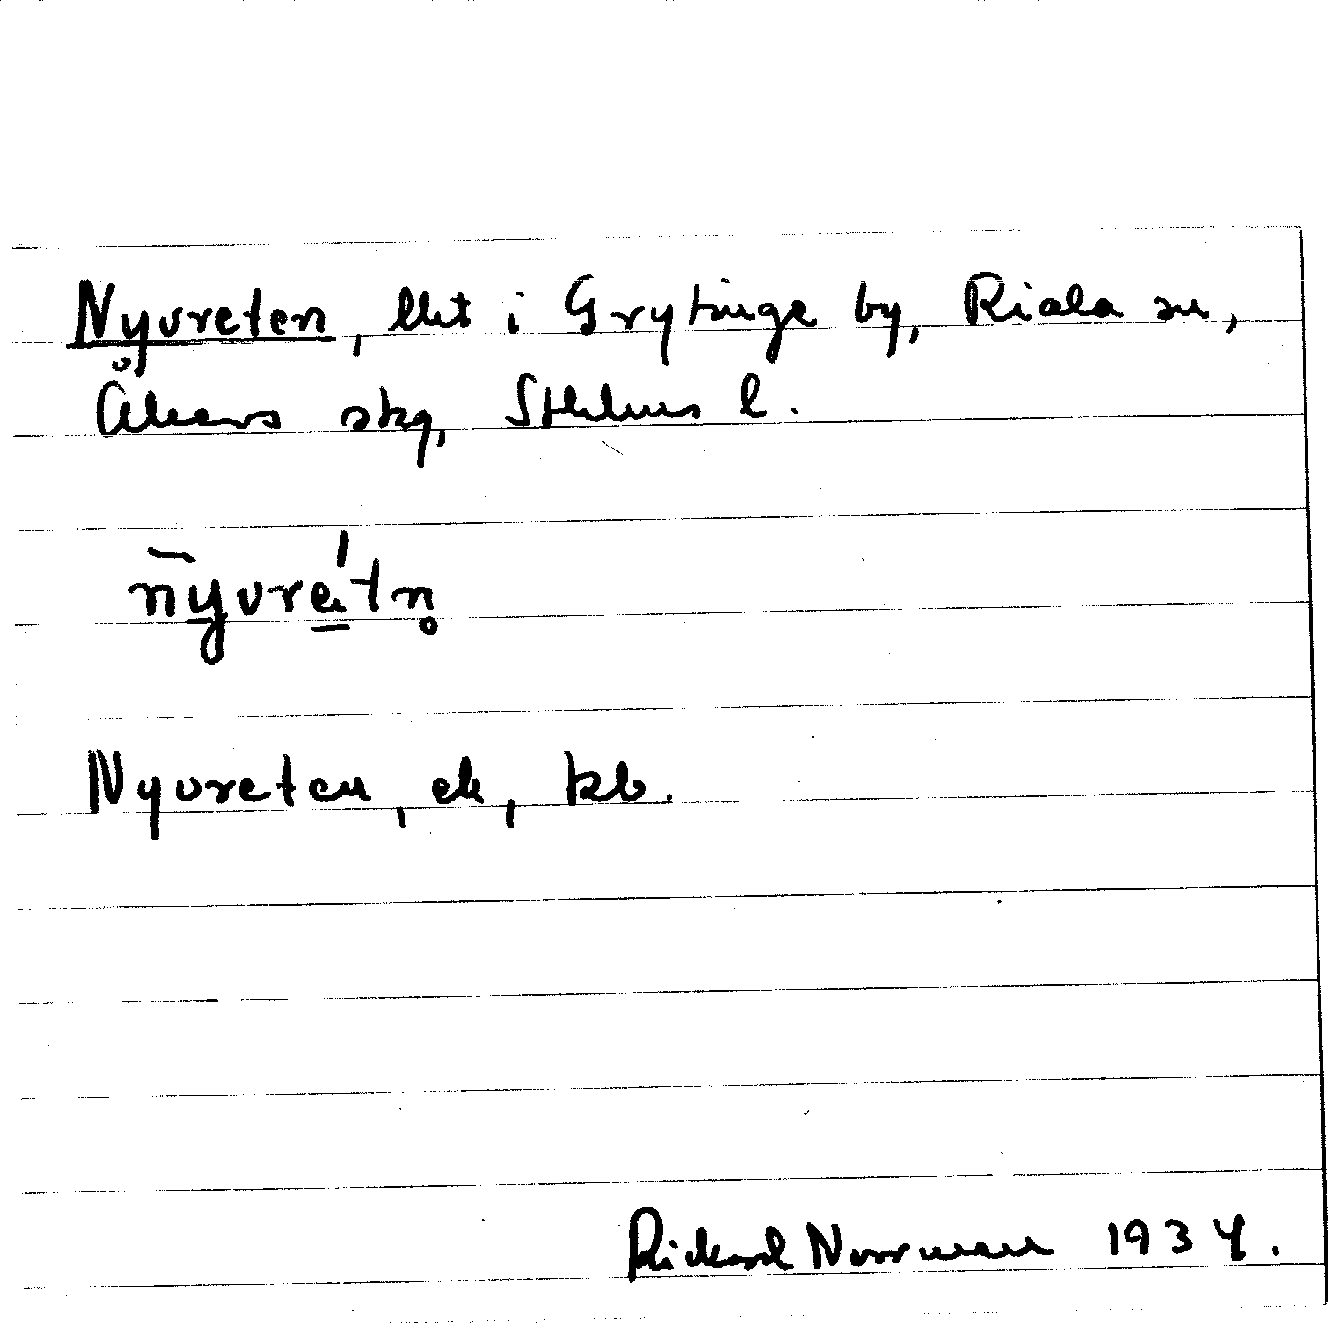 Nyvreten, lht i Grytinge by, Riala sn,
Åkers skg, Sthlms l.
nyvretn̥
Nyvreten, ek, kb.
Rickard Norrman 1934.